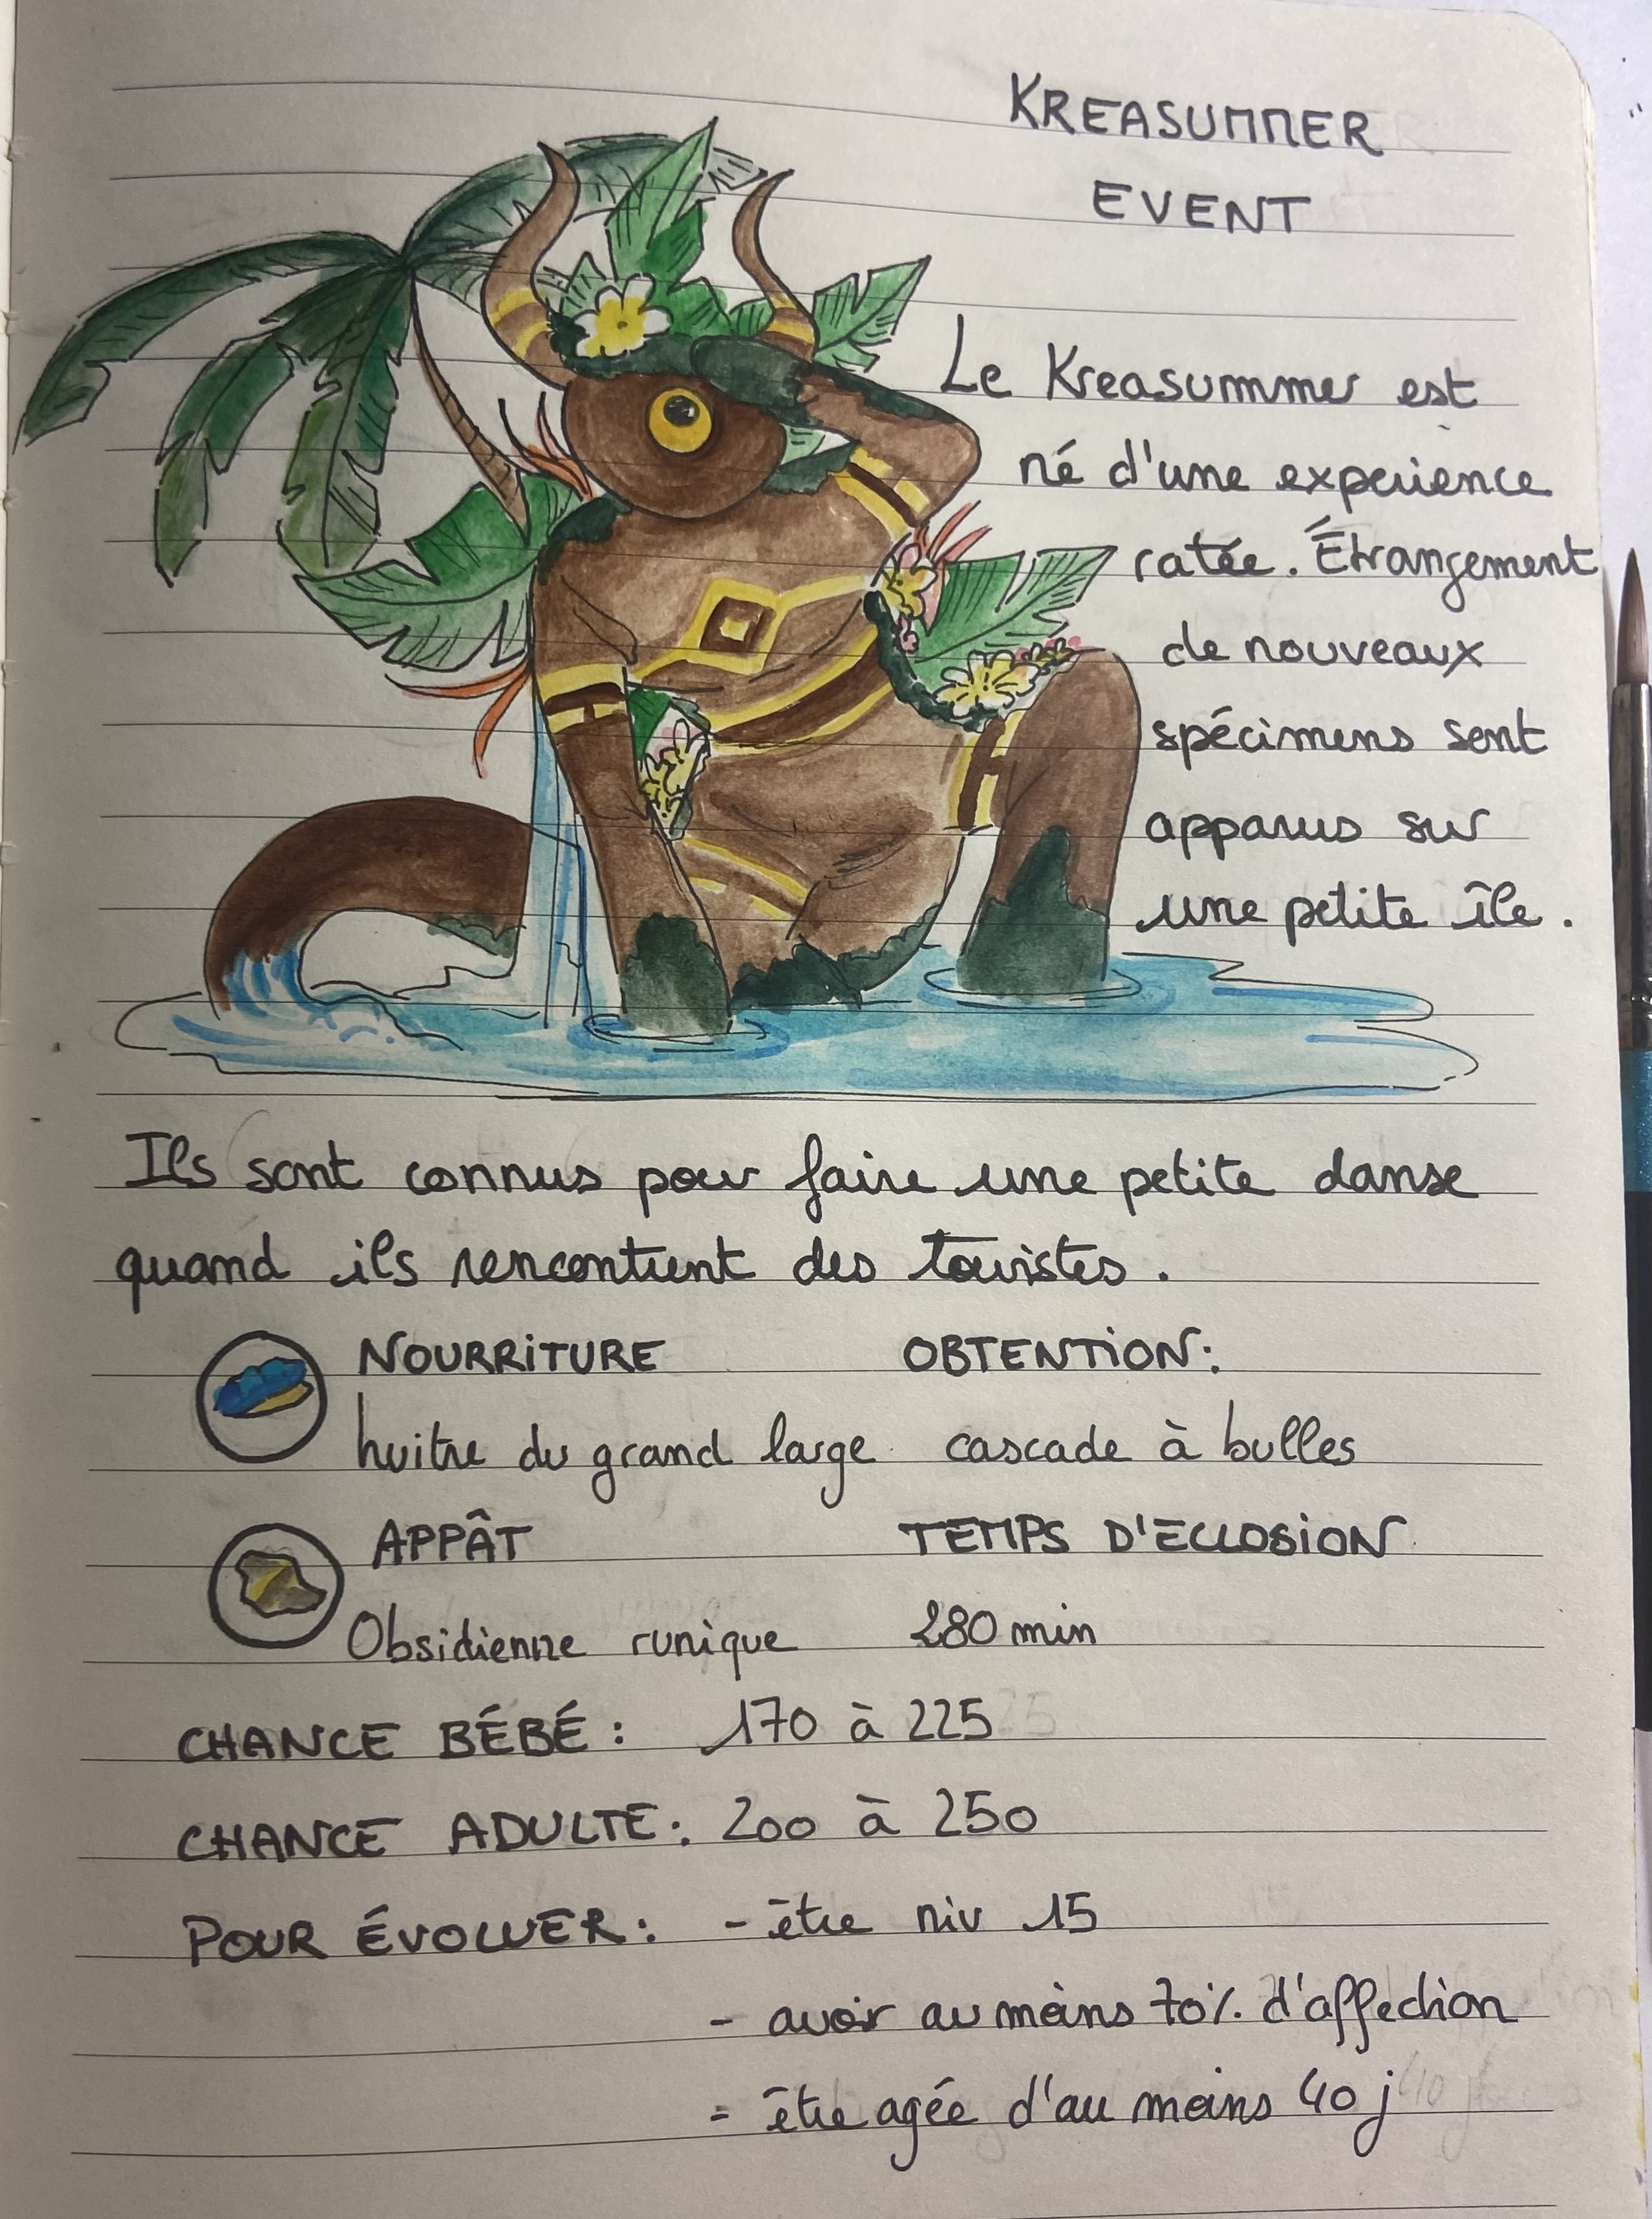 KREASUMMER
EVENT
Le Kreasummer est
né d'une experience
ratée. Étrangement
de nouveaux
spécimens sont
apparus sur
une petite île.
Ils sont connus pour faire une petite danse
quand ils rencontrent des touristes.
NOURRITURE
huitre du grand large
OBTENTION:
cascade à bulles
APPÂT
Obsidienne runique
TEMPS D'ECLOSION
280 min
CHANCE BÉBÉ: 170 à 225
CHANCE ADULTE: 200 à 250
POUR ÉVOLUER: - être niv 15
- avoir au moins 70% d'affection
- être agée d'au moins 40 j